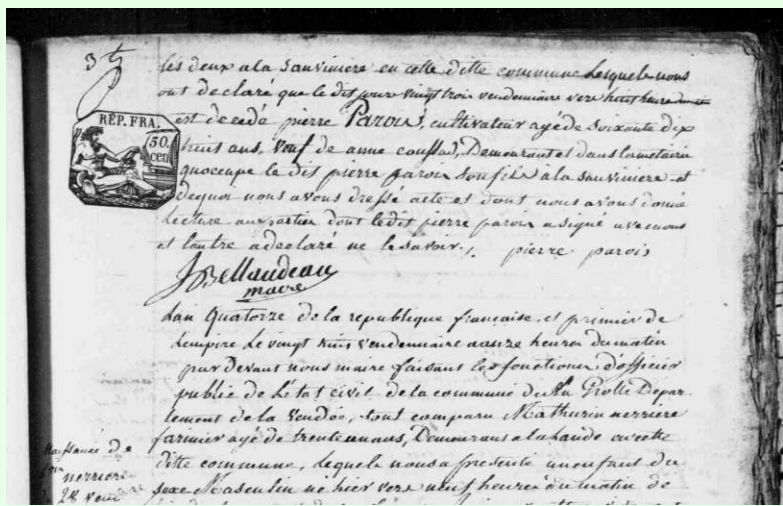 3
les deux a la Sauviniere en cette ditte commune Lesquels nous
ont declaré que le dit jour vingt trois vendemiaire vers huit heure
est decedé pierre Parois, cultivateur agé de soixante dix
huit ans, veuf de anne Demeurant et dans la metairie
quoccupe le dit pierre parois son fils a la Sauviniere et
dequoi nous avons dressé acte et dont nous avons donné
Lecture aux parties dont ledit pierre parois a signé avec nous
et lautre a declaré ne le savoir. pierre parois
RÉP. FRA.
50.
cen
maire
Lan Quatorze de la republique française, et premier de
Lempire Le vingt huit vendemiaire a onze heures du matin
par Devant nous maire faisant les fonctions d'officier
public de Letat civil de la commune de Grolle Depar-
tement de la Vendée, sont comparu Mathurin nerriere
farinier agé de trente un ans, Demeurant a la Lande en cette
ditte commune, lequel nous a presenté un enfant du
sexe Masculin né hier vers neuf heures du matin de
Naissance de
nerriere
28 vend